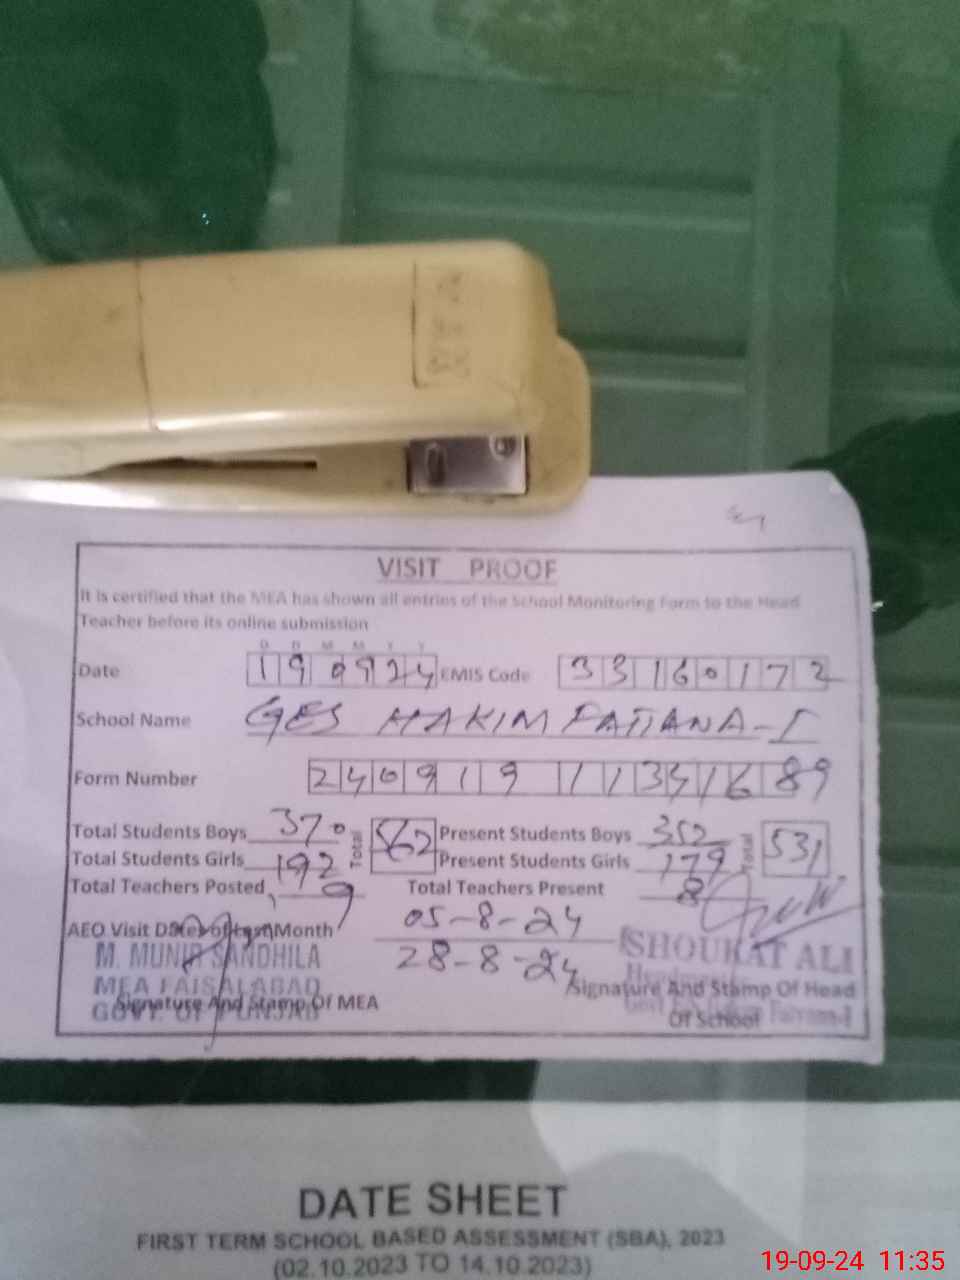 VISIT PROOF
It is certified that the MEA has shown all entries of the School Monitoring Form to the Head
Teacher before its online submission
D D M M Y Y
Date 190924 EMIS Code 33160172
School Name GES HAKIM PATIANA-I
Form Number 240919 11341689
Total Students Boys 370 Total 562 Present Students Boys 352 Total 531
Total Students Girls 192 Present Students Girls 179
Total Teachers Posted 9 Total Teachers Present 8
AEO Visit Date(s) of Last Month 05-8-24
28-8-24
M. MUNIR SANDHILA
MEA FAISALABAD
GOVT. OF PUNJAB
Signature And Stamp Of MEA
SHOUKAT ALI
Headmaster
Signature And Stamp Of Head
Of School
DATE SHEET
FIRST TERM SCHOOL BASED ASSESSMENT (SBA), 2023
(02.10.2023 TO 14.10.2023)
19-09-24 11:35